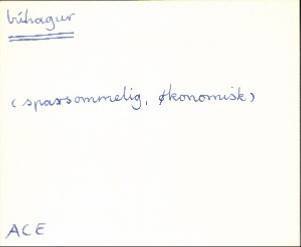 búhagur
(sparsommelig, økonomisk)
ACE